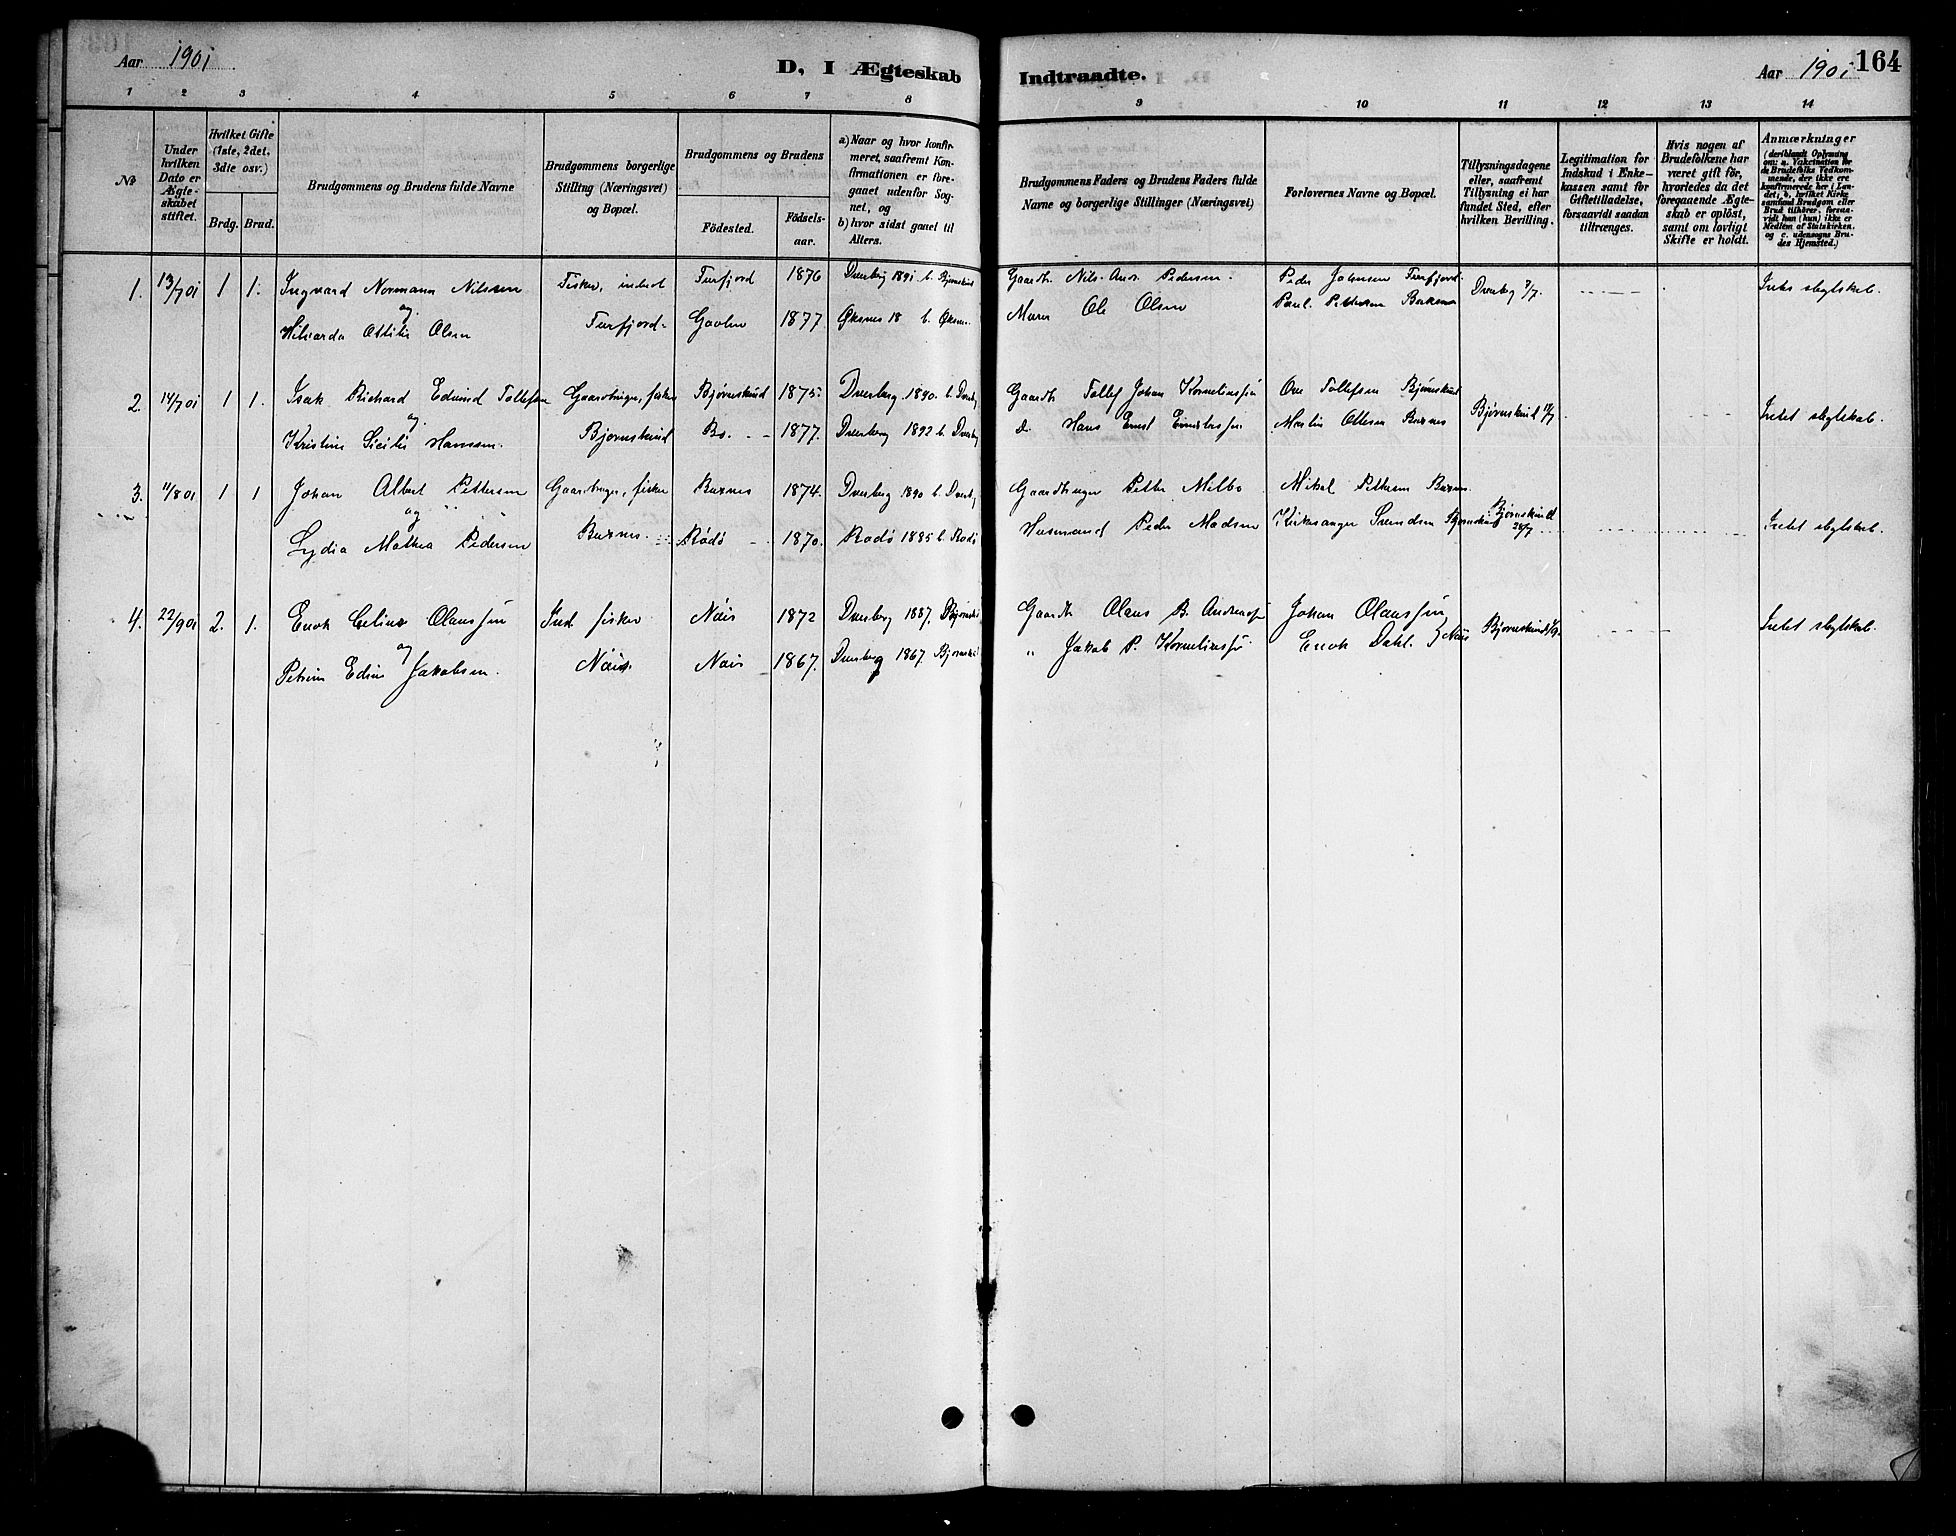 Aar 1901
D, I Ægteskab Indtraadte.
Aar 1901
164
1 2 3 4 5 6 7 8 9 10 11 12 13 14
No
Under hvilken Dato er Ægteskabet stiftet.
Hvilket Gifte (1ste, 2det, 3die osv.)
Brdg. Brud.
Brudgommens og Brudens fulde Navne
Brudgommens borgerlige Stilling (Næringsvei) og Bopæl.
Brudgommens og Brudens
Födested.
Födsels-aar.
a) Naar og hvor konfirmeret, saafremt Konfirmationen er foregaaet udenfor Sognet, og
b) hvor sidst gaaet til Alters.
Brudgommens Faders og Brudens Faders fulde Navne og borgerlige Stillinger (Næringsvei)
Forlovernes Navne og Bopæl.
Tillysningsdagene eller, saafremt Tillysning ei har fundet Sted, efter hvilken Bevilling.
Legitimation for Indskud i Enkekassen samt for Giftetilladelse, forsaavidt saadan tiltrænges.
Hvis nogen af Brudefolkene har været gift før, hvorledes da det foregaaende Ægteskab er opløst, samt om lovligt Skifte er holdt.
Anmærkninger
(deriblandt Oplysning om: a. Vakcination for de Brudefolks Vedkommende, der ikke ere konfirmerede her i Landet; b. hvilket Kirkesamfund Brudgom eller Brud tilhører, forsaavidt han (hun) ikke er Medlem af Statskirken, og c. udensogns Brudes Hjemsted.)
1. 13/7 01 1 1. Ingvard Normann Nilssen Fisker, Turfjord 1876 Dverberg 1891 b. Bjørnskind Gaardb. Nils Andr. Pedersen. Peder Johnsen Turfjord. Dverberg 7/7. Intet slegtskab.
og
Hilsarda Ottilie Olsen Turfjord. Gavlen 1877 Øksnes 18 b. Øksnes Murer Ole Olsen Paul Pettersen
2. 14/7 01 1 1. Isak Richard Edvind Tollefsen Gaardbruger, fisker Bjørnskind 1875. Dverberg 1890 b. Dverbg Gaardb. Tollef Johan Korneliussen Ove Tollefsen Bjørnskind Bjørnskind Intet slegtskab.
og
Kristine Sicilie Hansen. Bjørnskind Bo. 1877. Dverberg 1892 b. Dverbg d. Hans Ernst Martin Ottesen Buxnes
3. 11/8 01 1 1 Johan Albert Pettersen Gaardbruger, fisker Buxnes 1874. Dverberg 1890 b. Dverbg Gaardbruger Petter Melbo Mikal Pettersen Buxnes. Bjørnskind 28/7 Intet slegtskab.
og
Lydia Mathea Pedersen Buxnes. Rødø 1870. Rødø 1885 b. Rødø Husmand Peder Madsen Kirkesanger Svendsen Bjørnskind
4. 22/9 01 2. 1. Enok Celius Olaussen Ind. fisker Nøis 1872 Dverberg 1887. Bjørnski Gaardb. Olaus B. Andreassen Johan Olaussen Bjørnskind Intet slegtskab.
og
Petrine Edine Jakobsen. Nøis. Nøis 1867. Dverberg 1867 Bjørnski " Jakob P. Korneliussen Enok Dahl. } Nøis